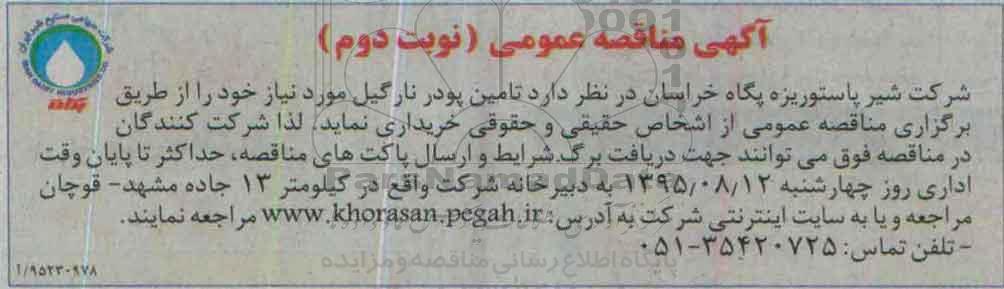 آگهی مناقصه عمومی (نوبت دوم)
شرکت شیر پاستوریزه پگاه خراسان در نظر دارد تامین پودر نارگیل مورد نیاز خود را از طریق
برگزاری مناقصه عمومی از اشخاص حقیقی و حقوقی خریداری نماید. لذا شرکت کنندگان
در مناقصه فوق می توانند جهت دریافت برگ شرایط و ارسال پاکت های مناقصه، حداکثر تا پایان وقت
اداری روز چهارشنبه ۱۳۹۵/۰۸/۱۲ به دبیرخانه شرکت واقع در کیلومتر ۱۳ جاده مشهد- قوچان
مراجعه و یا به سایت اینترنتی شرکت به آدرس: www.khorasan.pegah.ir مراجعه نمایند.
- تلفن تماس: ۳۵۴۲۰۷۲۵-۰۵۱
پایگاه اطلاع رسانی مناقصه و مزایده
۱/۹۵۲۳۰۹۷۸
شرکت سهامی صنایع شیر ایران
پگاه